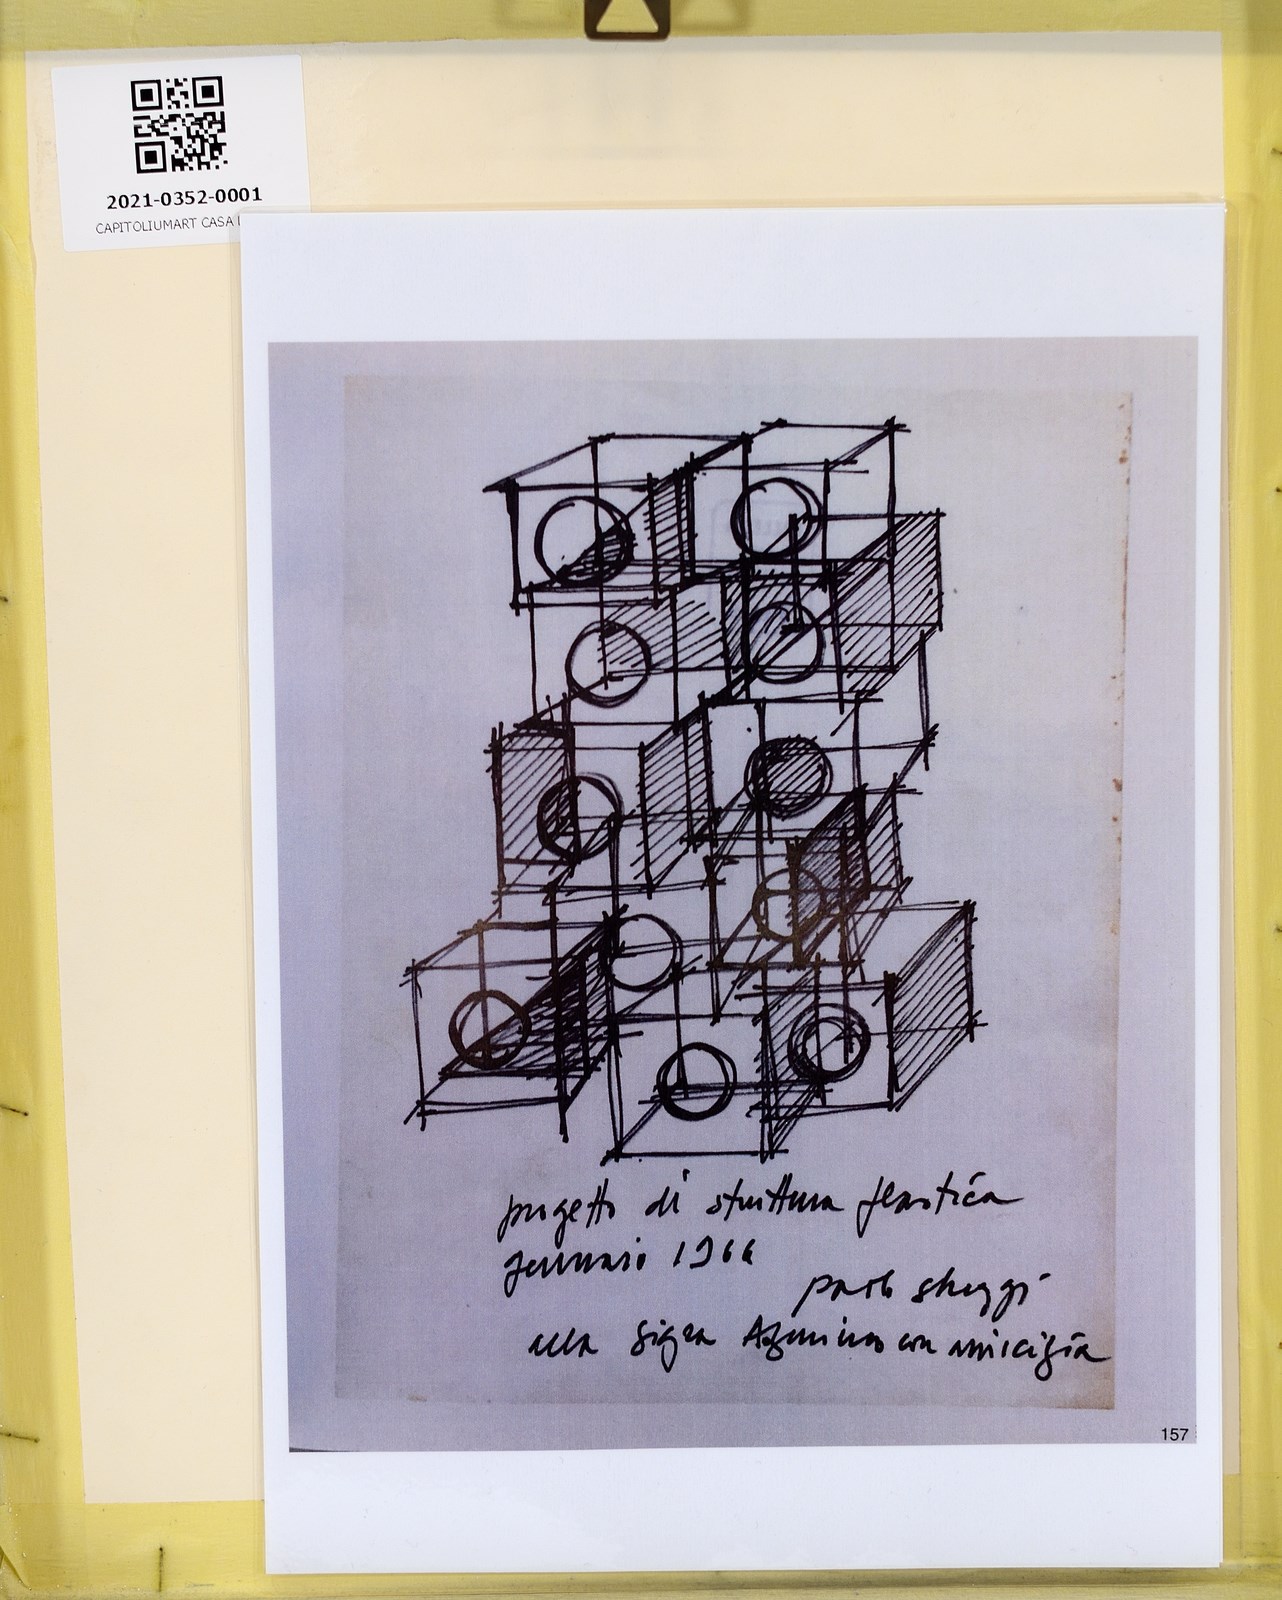 2021-0352-0001
CAPITOLIUMART CASA
progetto di struttura plastica
gennaio 1966
paolo scheggi
alla Sig.ra con amicizia
157